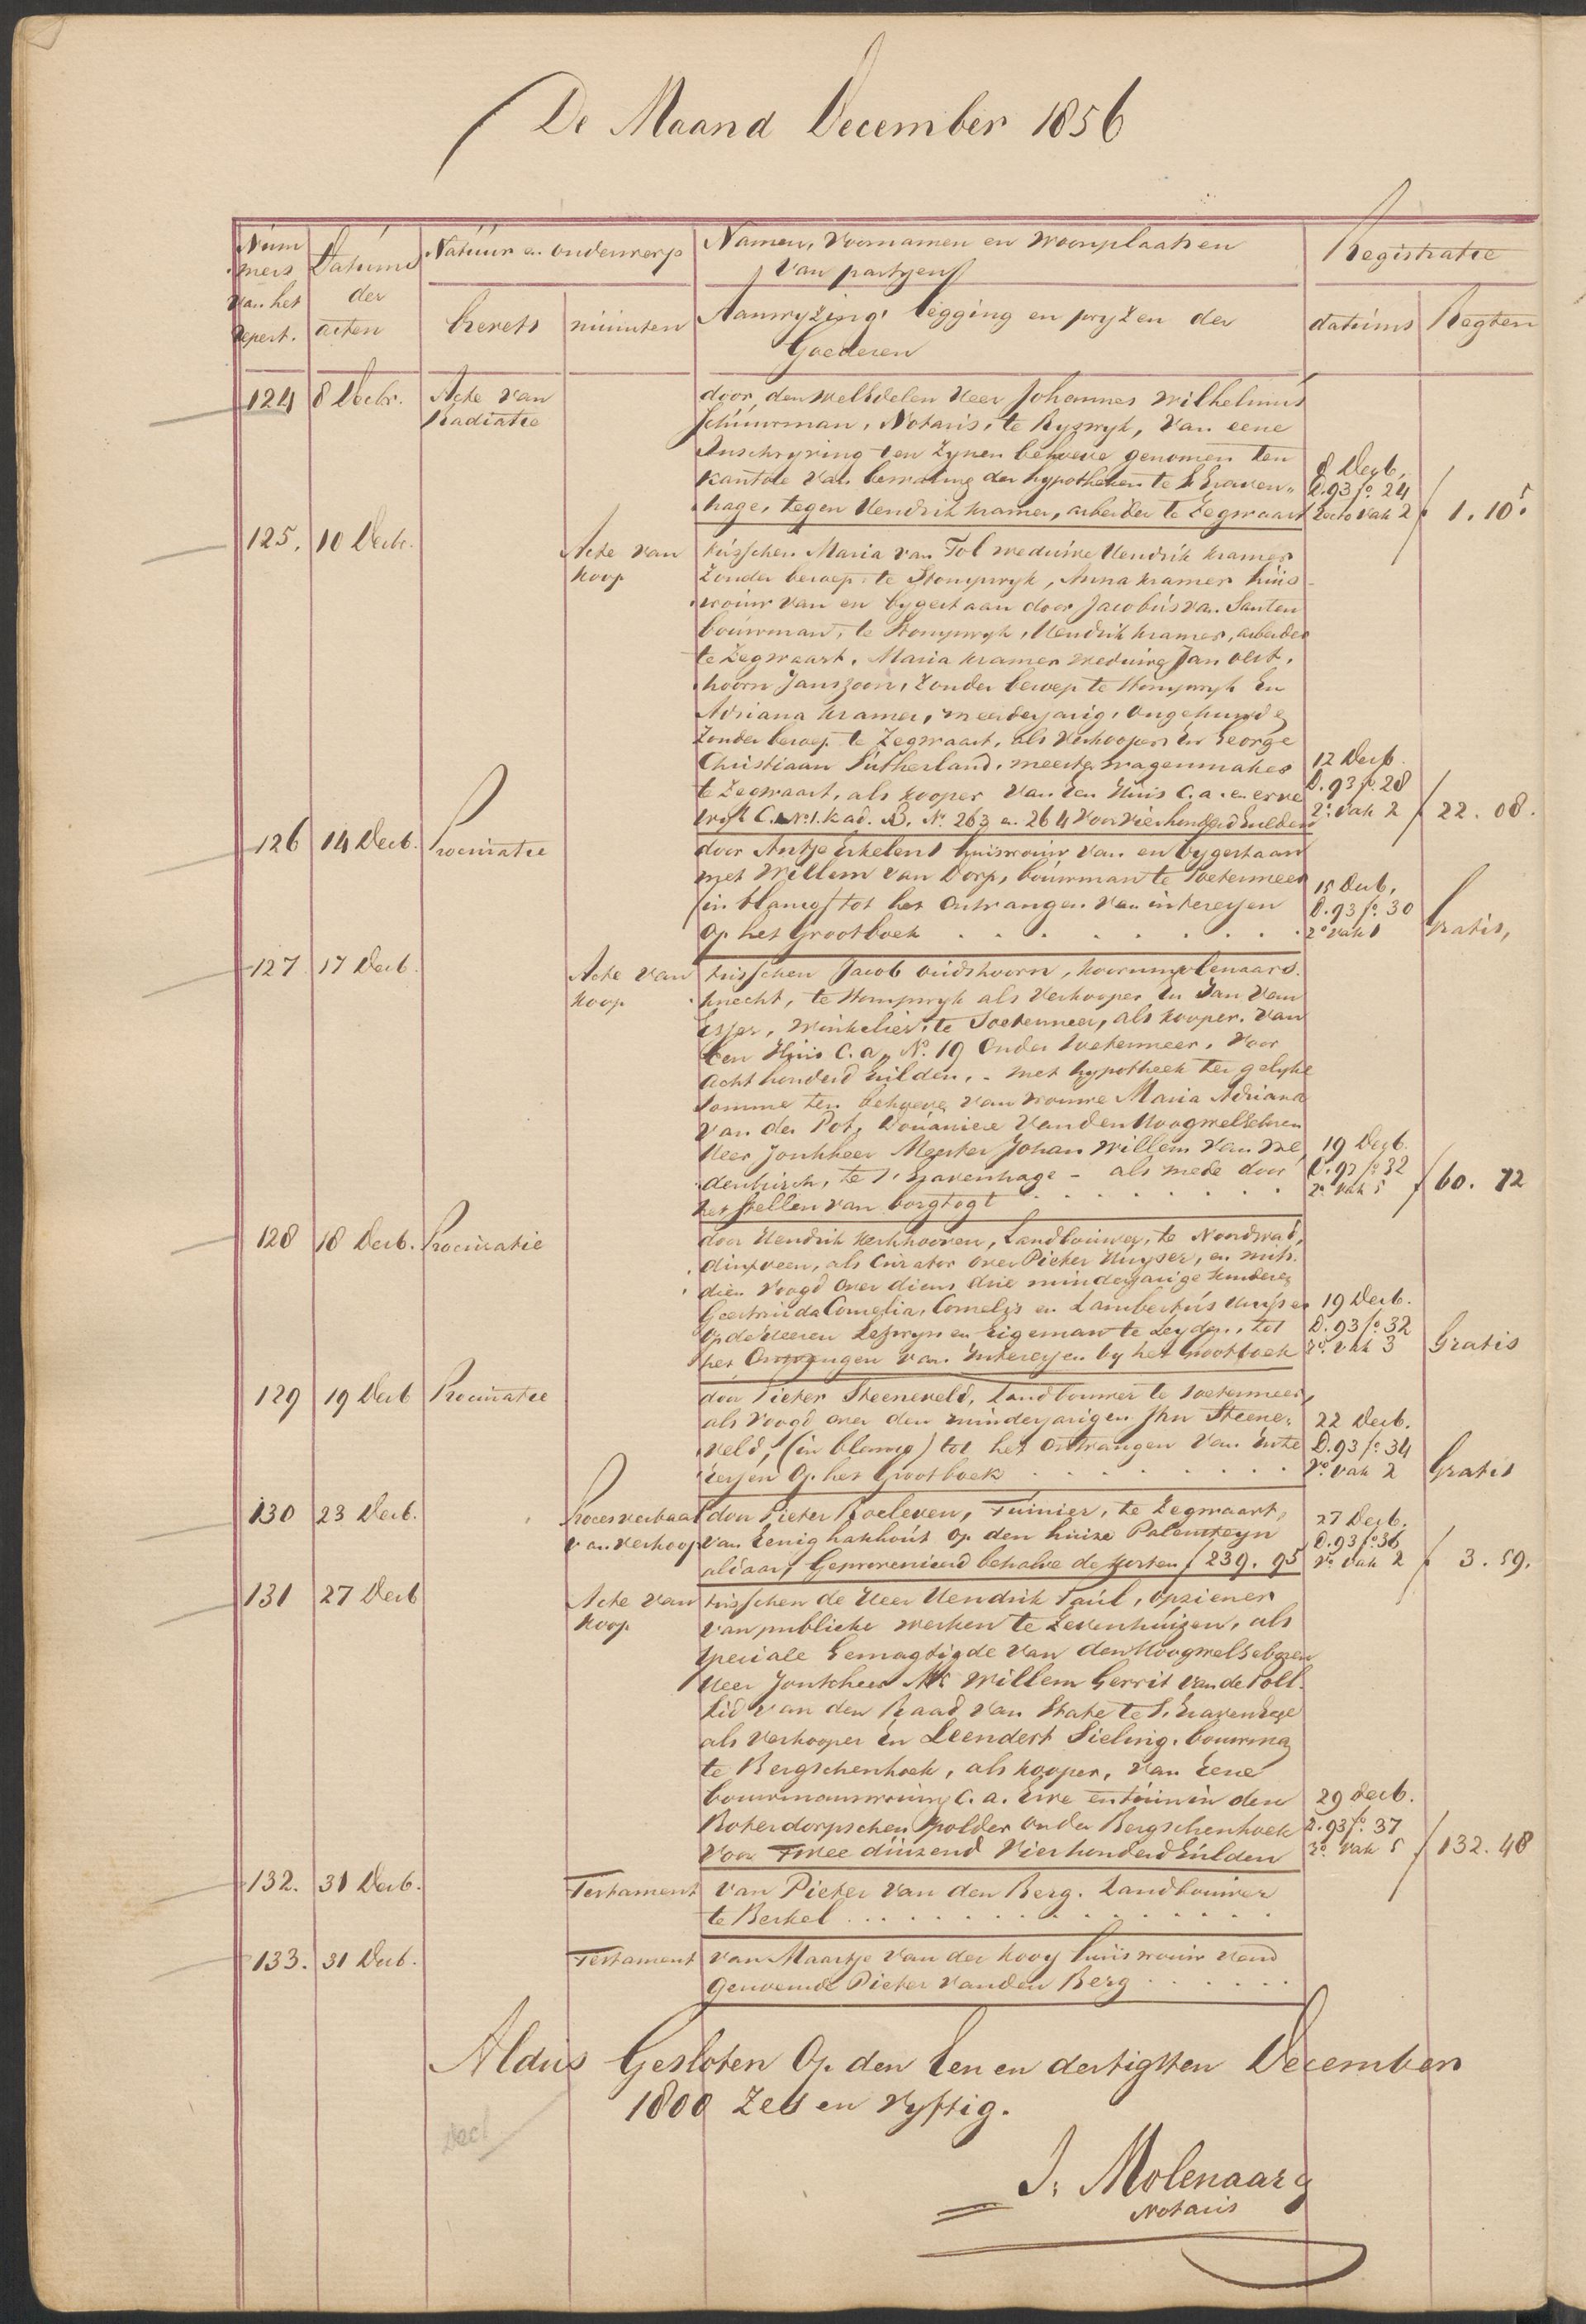 De Maand December 1856
Num
mers
van het
Repert.
Datums
der
acten
Natuur en onderwerp
brevets
minuten
Namen, voornamen en woonplaatsen
van partyen
Aanwyzing ligging en pryzen der
Goederen
Registratie
datums
Regten
124 8 Decbr. Acte van
Radiatie
door den welEdelen Heer Johannes Wilhelmus
Schuurman, Notaris, te Ryswyk, van eene
Inschryving ten zynen behoeve genomen ten
kantore van bewaring der hypotheken te 's Graven„
hage, tegen Hendrik Kramer, arbeider te Zegwaart
8 Decb.
D. 93 fo. 24
recto vak 2
f 1. 10 5.
125. 10 Decbr. Acte van
koop
tusschen Maria van Tol weduwe Hendrik Kramer
zonder beroep te Stompwyk, Anna Kramer huis
vrouw van en bygestaan door Jacobus van Santen
bouwman, te Stompwyk, Hendrik Kramer, arbeider
te Zegwaart, Maria Kramer weduwe Jan Olst,
hoorn Janszoon, zonder beroep te Stompwyk En
Adriana Kramer, meerderjarig, ongehuwde
zonder beroep te Zegwaart, als verkoopers En George
Christiaan Sutherland, meester wagenmaker
te Zegwaart, als kooper van een Huis c.a. en erve
wyk C. No 1. kad. B. No. 263 en 264 voor vierhonderd Gulden
12 Decb.
D. 93 fo. 28
ro. vak 2
f 22. 08.
126 14 Decb. Procuratie
door Antje Erkelens huisvrouw van en bygestaan
met Willem van Dorp, bouwman te Zoetermeer
(in blanco) tot het ontvangen van interessen
op het Grootboek
15 Decb.
D. 93 fo. 30
ro vak 1
Gratis,
127 17 Decb. Acte van
koop
tusschen Jacob oudshoorn, koornmolenaars.
knecht, te Stompwyk als verkooper En Jan van
Esjes, winkelier, te Zoetermeer, als kooper. Van
Een Huis c.a. No. 19 onder Zoetermeer, voor
acht honderd Gulden, met hypotheek ter gelyke
somme ten behoeve van vrouwe Maria Adriana
van der Pot, Douariere van den Hoogwelgeboren
Heer Jonkheer Meester Johan Willem van
te 's Gravenhage - als mede door
het stellen van borgtogt
19 Decb.
D. 93 fo 32
ro. vak 5
f 60. 72
128 18 Decb. Procuratie
door Hendrik Kerkhooven, Landbouwer, te Noordwad,
dinxveen, als Curator over Pieter Huyser, en mits.
dien voogd over diens drie minderjarige kinderen
Geertruida Cornelia, Cornelis en Lambertus Huyser
op de Heeren Lezwyn en Eigeman te Leyden, tot
het Ontvangen van Interessen by het Grootboek
19 Decb.
D. 93 fo 32
ro. vak 3
Gratis
129 19 Decb Procuratie
door Pieter Steeneveld, Landbouwer te Zoetermeer,
als voogd over den minderjarigen Jhn Steene„
veld, (in blanco) tot het ontvangen van Inte
ressen op het Grootboek
22 Decb.
D. 93 fo. 34
vo. vak 2
Gratis
130 23 Decb. Procesverbaal
van verkoop
door Pieter Roeleven, Tuinier, te Zegwaart,
van Eenig hakhout op den huize Palensteyn
aldaar, Geprovenieerd behalve de kosten f 239. 95
27 Decb.
D. 93 fo 36
vo vak 2
f 3. 59.
131 27 Decb Acte van
koop
tusschen de Heer Hendrik Paul, opziener
van publieke werken te Zevenhuizen, als
speciale Gemagtigde van den Hoogwelgeboren
Heer Jonkheer Mr. Willem Gerrit van de Poll
Lid van den Raad van State te 's Gravenhage
als verkooper En Leendert Sieling, bouwman
te Bergschenhoek, als kooper, van Eene
bouwmanswoning c.a. Erve en tuin in den
Boterdorpschen polder onder Bergschenhoek
voor Twee duizend Vierhonderd Gulden
29 Decb.
D. 93 fo. 37
ro. vak 5
f 132. 48
132. 31 Decb. Testament
van Pieter van den Berg. Landbouwer
te Berkel
133. 31 Decb. Testament
van Maartje van der Kooy huisvrouw van
genoemde Pieter van den Berg
Aldus Gesloten Op den Een en dertigsten December
1800 Zes en Vyftig.
Decl
J. Molenaar
Notaris